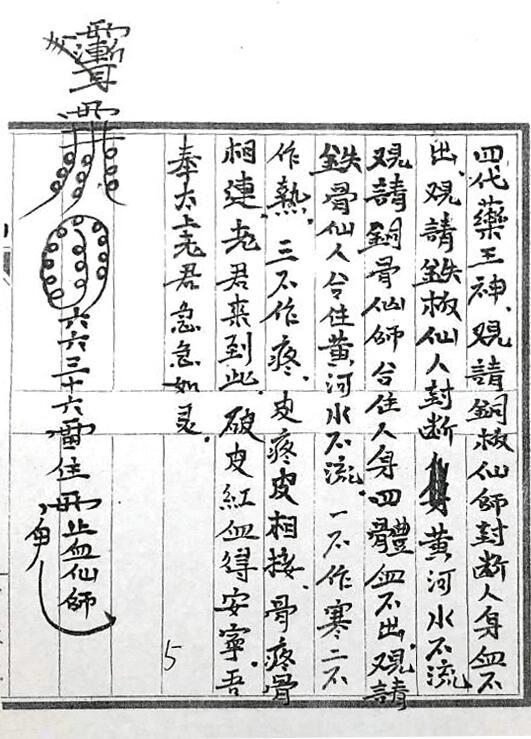 四代藥王神.观請銅板仙師封断人身血不
出.观請鉄板仙人封断黄河水不流.
观請銅骨仙師合住人身四體血不出.观請
鉄骨仙人合住黄河水不流.一不作寒二不
作熱.三不作疼.皮疼皮相接.骨疼骨
相連.老君来到此.破皮紅血得安寧.吾
奉太上老君急急如灵.
六六三十六雷住 止血仙師
5